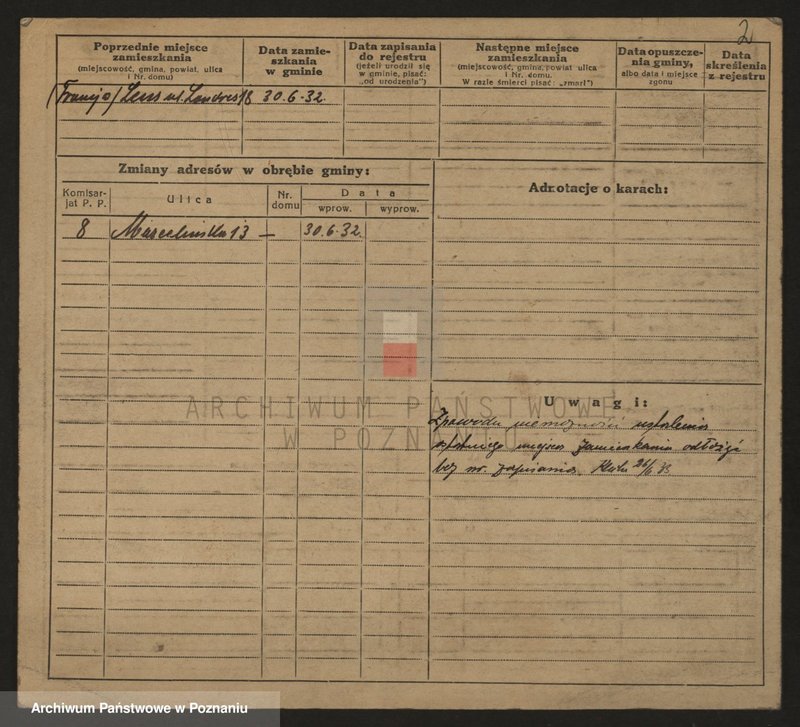 2
Poprzednie miejsce
zamieszkania
(miejscowość, gmina, powiat, ulica
i Nr. domu)
Data zamie-
szkania
w gminie
Data zapisania
do rejestru
(jeżeli urodził się
w gminie, pisać:
„od urodzenia")
Następne miejsce
zamieszkania
(miejscowość, gmina, powiat, ulica
i Nr. domu.
W razie śmierci pisać: „zmarł")
Data opuszcze-
nia gminy,
albo data i miejsce
zgonu
Data
skreślenia
z rejestru
(Francja) Lens ul. Londres 18 30.6.32.
Zmiany adresów w obrębie gminy:
Komisar-
jat P. P.
Ulica
Nr.
domu
Data
wprow.
wyprow.
8 Marcelińska 13 — 30.6.32.
Adnotacje o karach:
Uwagi:
Z powodu niemożności ustalenia
miejsca zamieszkania
bez nr. zapisania.
ARCHIWUM PAŃSTWOWE
W POZNANIU
Archiwum Państwowe w Poznaniu